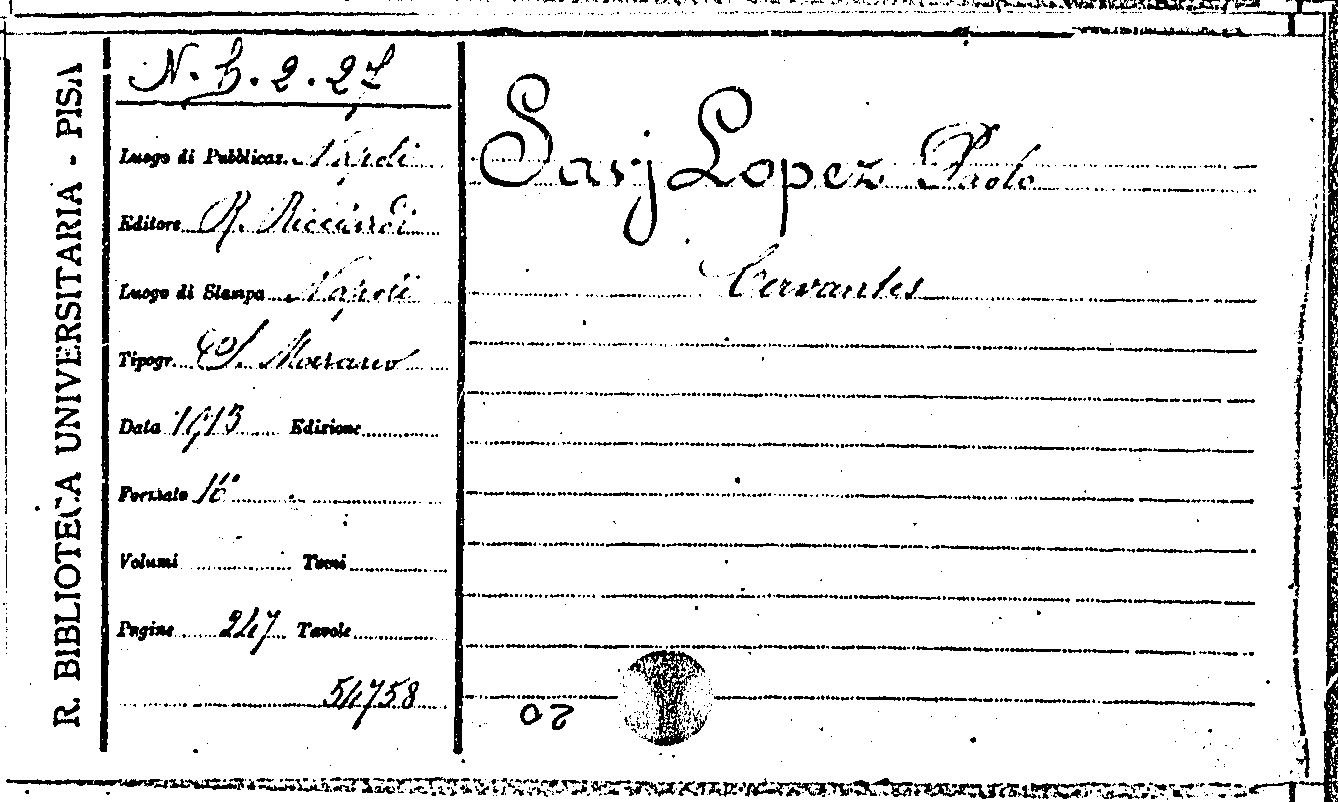 R. BIBLIOTECA UNIVERSITARIA - PISA
N. b. 2. 27
Luogo di Pubblicaz. Napoli
Editore R. Ricciardi
Luogo di Stampa Napoli
Tipogr. S. Morano
Data 1913 Edizione
Formato 16°
Volumi Tomi
Pagine 247 Tavole
54758
Savj Lopez Paolo
Cervantes
20